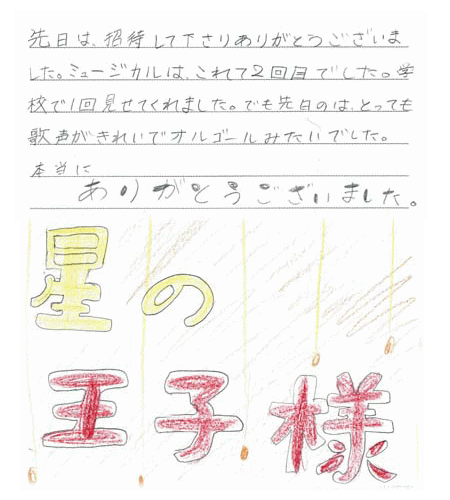 先日は、招待して下さりありがとうございま
した。ミュージカルは、これで2回目でした。学
校で1回見せてくれました。でも先日のは、とっても
歌声がきれいでオルゴールみたいでした。
本当に
ありがとうございました。
星の
王子様